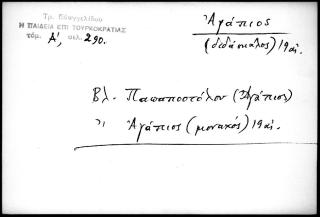 Τρ. Εὐαγγελίδου
Η ΠΑΙΔΕΙΑ ΕΠΙ ΤΟΥΡΚΟΚΡΑΤΙΑΣ
τόμ. Α', σελ. 290.
Ἀγάπιος
(διδάσκαλος) 19 αἰ.
Βλ. Παπαποστόλου (Ἀγάπιος)
〃 Ἀγάπιος (μοναχός) 19 αἰ.